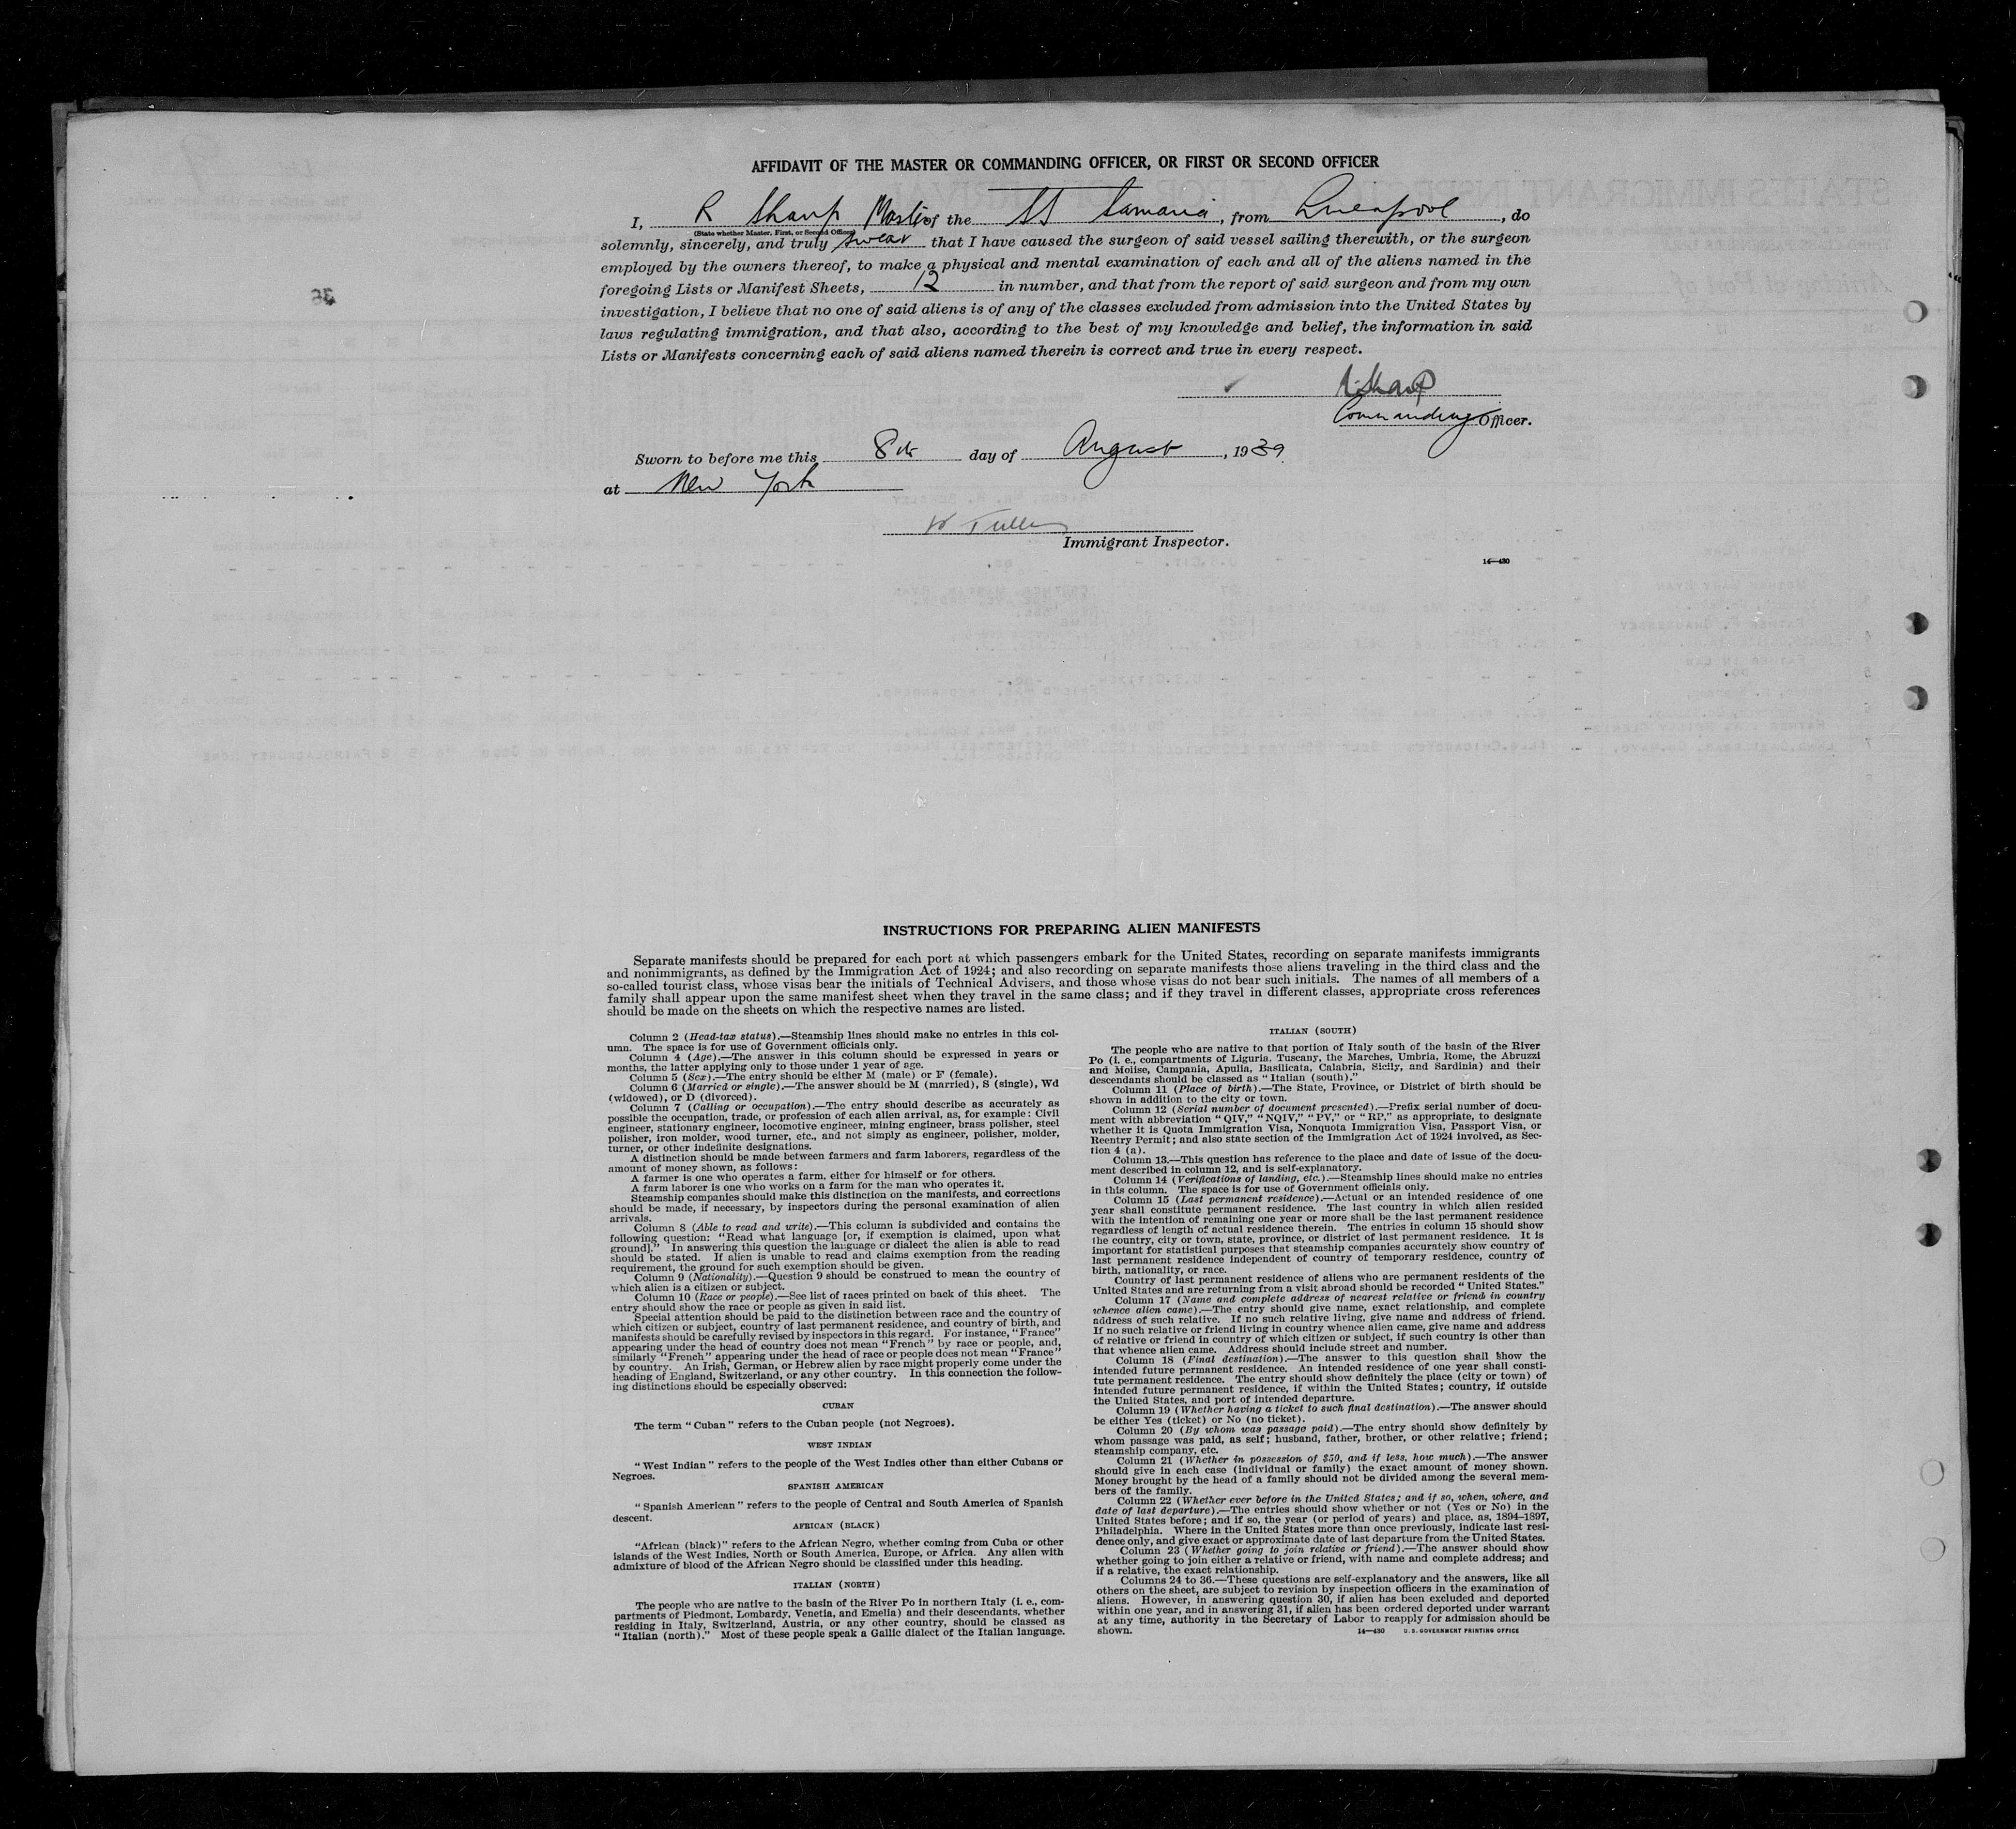 AFFIDAVIT OF THE MASTER OR COMMANDING OFFICER, OR FIRST OR SECOND OFFICER
I, R Sharp Master of the SS Samaria, from Liverpool, do
(State whether Master, First, or Second Officer)
solemnly, sincerely, and truly swear that I have caused the surgeon of said vessel sailing therewith, or the surgeon
employed by the owners thereof, to make a physical and mental examination of each and all of the aliens named in the
foregoing Lists or Manifest Sheets, 12 in number, and that from the report of said surgeon and from my own
investigation, I believe that no one of said aliens is of any of the classes excluded from admission into the United States by
laws regulating immigration, and that also, according to the best of my knowledge and belief, the information in said
Lists or Manifests concerning each of said aliens named therein is correct and true in every respect.
R Sharp
Commanding Officer.
Sworn to before me this 8th day of August, 1939
at New York
Immigrant Inspector.
14—430
INSTRUCTIONS FOR PREPARING ALIEN MANIFESTS
Separate manifests should be prepared for each port at which passengers embark for the United States, recording on separate manifests immigrants
and nonimmigrants, as defined by the Immigration Act of 1924; and also recording on separate manifests those aliens traveling in the third class and the
so-called tourist class, whose visas bear the initials of Technical Advisers, and those whose visas do not bear such initials. The names of all members of a
family shall appear upon the same manifest sheet when they travel in the same class; and if they travel in different classes, appropriate cross references
should be made on the sheets on which the respective names are listed.
Column 2 (Head-tax status).—Steamship lines should make no entries in this col-
umn. The space is for use of Government officials only.
Column 4 (Age).—The answer in this column should be expressed in years or
months, the latter applying only to those under 1 year of age.
Column 5 (Sex).—The entry should be either M (male) or F (female).
Column 6 (Married or single).—The answer should be M (married), S (single), Wd
(widowed), or D (divorced).
Column 7 (Calling or occupation).—The entry should describe as accurately as
possible the occupation, trade, or profession of each alien arrival, as, for example: Civil
engineer, stationary engineer, locomotive engineer, mining engineer, brass polisher, steel
polisher, iron molder, wood turner, etc., and not simply as engineer, polisher, molder,
turner, or other indefinite designations.
A distinction should be made between farmers and farm laborers, regardless of the
amount of money shown, as follows:
A farmer is one who operates a farm, either for himself or for others.
A farm laborer is one who works on a farm for the man who operates it.
Steamship companies should make this distinction on the manifests, and corrections
should be made, if necessary, by inspectors during the personal examination of alien
arrivals.
Column 8 (Able to read and write).—This column is subdivided and contains the
following question: "Read what language [or, if exemption is claimed, upon what
ground]." In answering this question the language or dialect the alien is able to read
should be stated. If alien is unable to read and claims exemption from the reading
requirement, the ground for such exemption should be given.
Column 9 (Nationality).—Question 9 should be construed to mean the country of
which alien is a citizen or subject.
Column 10 (Race or people).—See list of races printed on back of this sheet. The
entry should show the race or people as given in said list.
Special attention should be paid to the distinction between race and the country of
which citizen or subject, country of last permanent residence, and country of birth, and
manifests should be carefully revised by inspectors in this regard. For instance, "France"
appearing under the head of country does not mean "French" by race or people, and,
similarly "French" appearing under the head of race or people does not mean "France"
by country. An Irish, German, or Hebrew alien by race might properly come under the
heading of England, Switzerland, or any other country. In this connection the follow-
ing distinctions should be especially observed:
CUBAN
The term "Cuban" refers to the Cuban people (not Negroes).
WEST INDIAN
"West Indian" refers to the people of the West Indies other than either Cubans or
Negroes.
SPANISH AMERICAN
"Spanish American" refers to the people of Central and South America of Spanish
descent.
AFRICAN (BLACK)
"African (black)" refers to the African Negro, whether coming from Cuba or other
islands of the West Indies, North or South America, Europe, or Africa. Any alien with
admixture of blood of the African Negro should be classified under this heading.
ITALIAN (NORTH)
The people who are native to the basin of the River Po in northern Italy (i. e., com-
partments of Piedmont, Lombardy, Venetia, and Emelia) and their descendants, whether
residing in Italy, Switzerland, Austria, or any other country, should be classed as
"Italian (north)." Most of these people speak a Gallic dialect of the Italian language.
ITALIAN (SOUTH)
The people who are native to that portion of Italy south of the basin of the River
Po (i. e., compartments of Liguria, Tuscany, the Marches, Umbria, Rome, the Abruzzi
and Molise, Campania, Apulia, Basilicata, Calabria, Sicily, and Sardinia) and their
descendants should be classed as "Italian (south)."
Column 11 (Place of birth).—The State, Province, or District of birth should be
shown in addition to the city or town.
Column 12 (Serial number of document presented).—Prefix serial number of docu-
ment with abbreviation "QIV," "NQIV," "PV," or "RP," as appropriate, to designate
whether it is Quota Immigration Visa, Nonquota Immigration Visa, Passport Visa, or
Reentry Permit; and also state section of the Immigration Act of 1924 involved, as Sec-
tion 4 (a).
Column 13.—This question has reference to the place and date of issue of the docu-
ment described in column 12, and is self-explanatory.
Column 14 (Verifications of landing, etc.).—Steamship lines should make no entries
in this column. The space is for use of Government officials only.
Column 15 (Last permanent residence).—Actual or an intended residence of one
year shall constitute permanent residence. The last country in which alien resided
with the intention of remaining one year or more shall be the last permanent residence
regardless of length of actual residence therein. The entries in column 15 should show
the country, city or town, state, province, or district of last permanent residence. It is
important for statistical purposes that steamship companies accurately show country of
last permanent residence independent of country of temporary residence, country of
birth, nationality, or race.
Country of last permanent residence of aliens who are permanent residents of the
United States and are returning from a visit abroad should be recorded "United States."
Column 17 (Name and complete address of nearest relative or friend in country
whence alien came).—The entry should give name, exact relationship, and complete
address of such relative. If no such relative living, give name and address of friend.
If no such relative or friend living in country whence alien came, give name and address
of relative or friend in country of which citizen or subject, if such country is other than
that whence alien came. Address should include street and number.
Column 18 (Final destination).—The answer to this question shall show the
intended future permanent residence. An intended residence of one year shall consti-
tute permanent residence. The entry should show definitely the place (city or town) of
intended future permanent residence, if within the United States; country, if outside
the United States, and port of intended departure.
Column 19 (Whether having a ticket to such final destination).—The answer should
be either Yes (ticket) or No (no ticket).
Column 20 (By whom was passage paid).—The entry should show definitely by
whom passage was paid, as self; husband, father, brother, or other relative; friend;
steamship company, etc.
Column 21 (Whether in possession of $50, and if less, how much).—The answer
should give in each case (individual or family) the exact amount of money shown.
Money brought by the head of a family should not be divided among the several mem-
bers of the family.
Column 22 (Whether ever before in the United States; and if so, when, where, and
date of last departure).—The entries should show whether or not (Yes or No) in the
United States before; and if so, the year (or period of years) and place, as, 1894–1897,
Philadelphia. Where in the United States more than once previously, indicate last resi-
dence only, and give exact or approximate date of last departure from the United States.
Column 23 (Whether going to join relative or friend).—The answer should show
whether going to join either a relative or friend, with name and complete address; and
if a relative, the exact relationship.
Columns 24 to 36.—These questions are self-explanatory and the answers, like all
others on the sheet, are subject to revision by inspection officers in the examination of
aliens. However, in answering question 30, if alien has been excluded and deported
within one year, and in answering 31, if alien has been ordered deported under warrant
at any time, authority in the Secretary of Labor to reapply for admission should be
shown.
14—430 U. S. GOVERNMENT PRINTING OFFICE